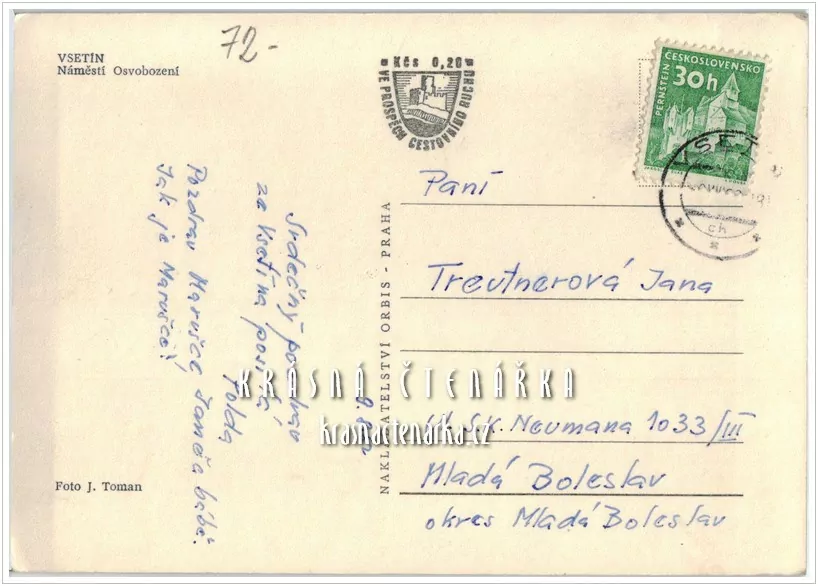 VSETÍN
Náměstí Osvobození
72-
Kčs 0,20
VE PROSPĚCH CESTOVNÍHO RUCHU
ČESKOSLOVENSKO
30h
PERNŠTEJN
VSET
ch
Srdečný pozdrav
ze Vsetína posílá
Polda
Pozdrav Marušce
Jak je Marušce?
NAKLADATELSTVÍ ORBIS - PRAHA
Paní
Treutnerová Jana
ul. S. K. Neumana 1033/III
Mladá Boleslav
okres Mladá Boleslav
KRÁSNÁ ČTENÁŘKA
krasnactenarka.cz
Foto J. Toman